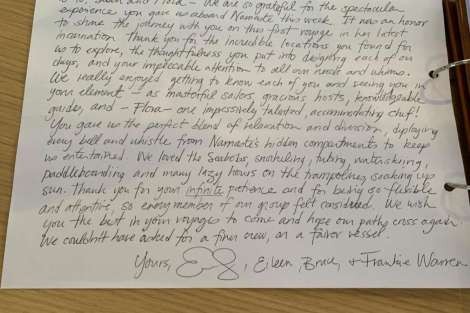 and Flora – We are so grateful for the spectacular
experience you gave us aboard Namaste this week. It was an honor
to share the journey with you on this first voyage in her latest
incarnation. Thank you for the incredible locations you found for
us to explore, the thoughtfulness you put into designing each of our
days, and your impeccable attention to all our needs and whims.
We really enjoyed getting to know each of you and seeing you in
your element – as masterful sailors, gracious hosts, knowledgeable
guides, and – Flora – one impressively talented, accommodating chef!
You gave us the perfect blend of relaxation and diversion, deploying
every bell and whistle from Namaste's hidden compartments to keep
us entertained. We loved the Seabobs, snorkeling, tubing, waterskiing,
paddleboarding and many lazy hours on the trampolines, soaking up
sun. Thank you for your infinite patience and for being so flexible
and attentive, so every member of our group felt considered. We wish
you the best in your voyages to come and hope our paths cross again.
We couldn't have asked for a finer crew, or a fairer vessel.
Yours, Eileen, Bruce, + Frankie Warren